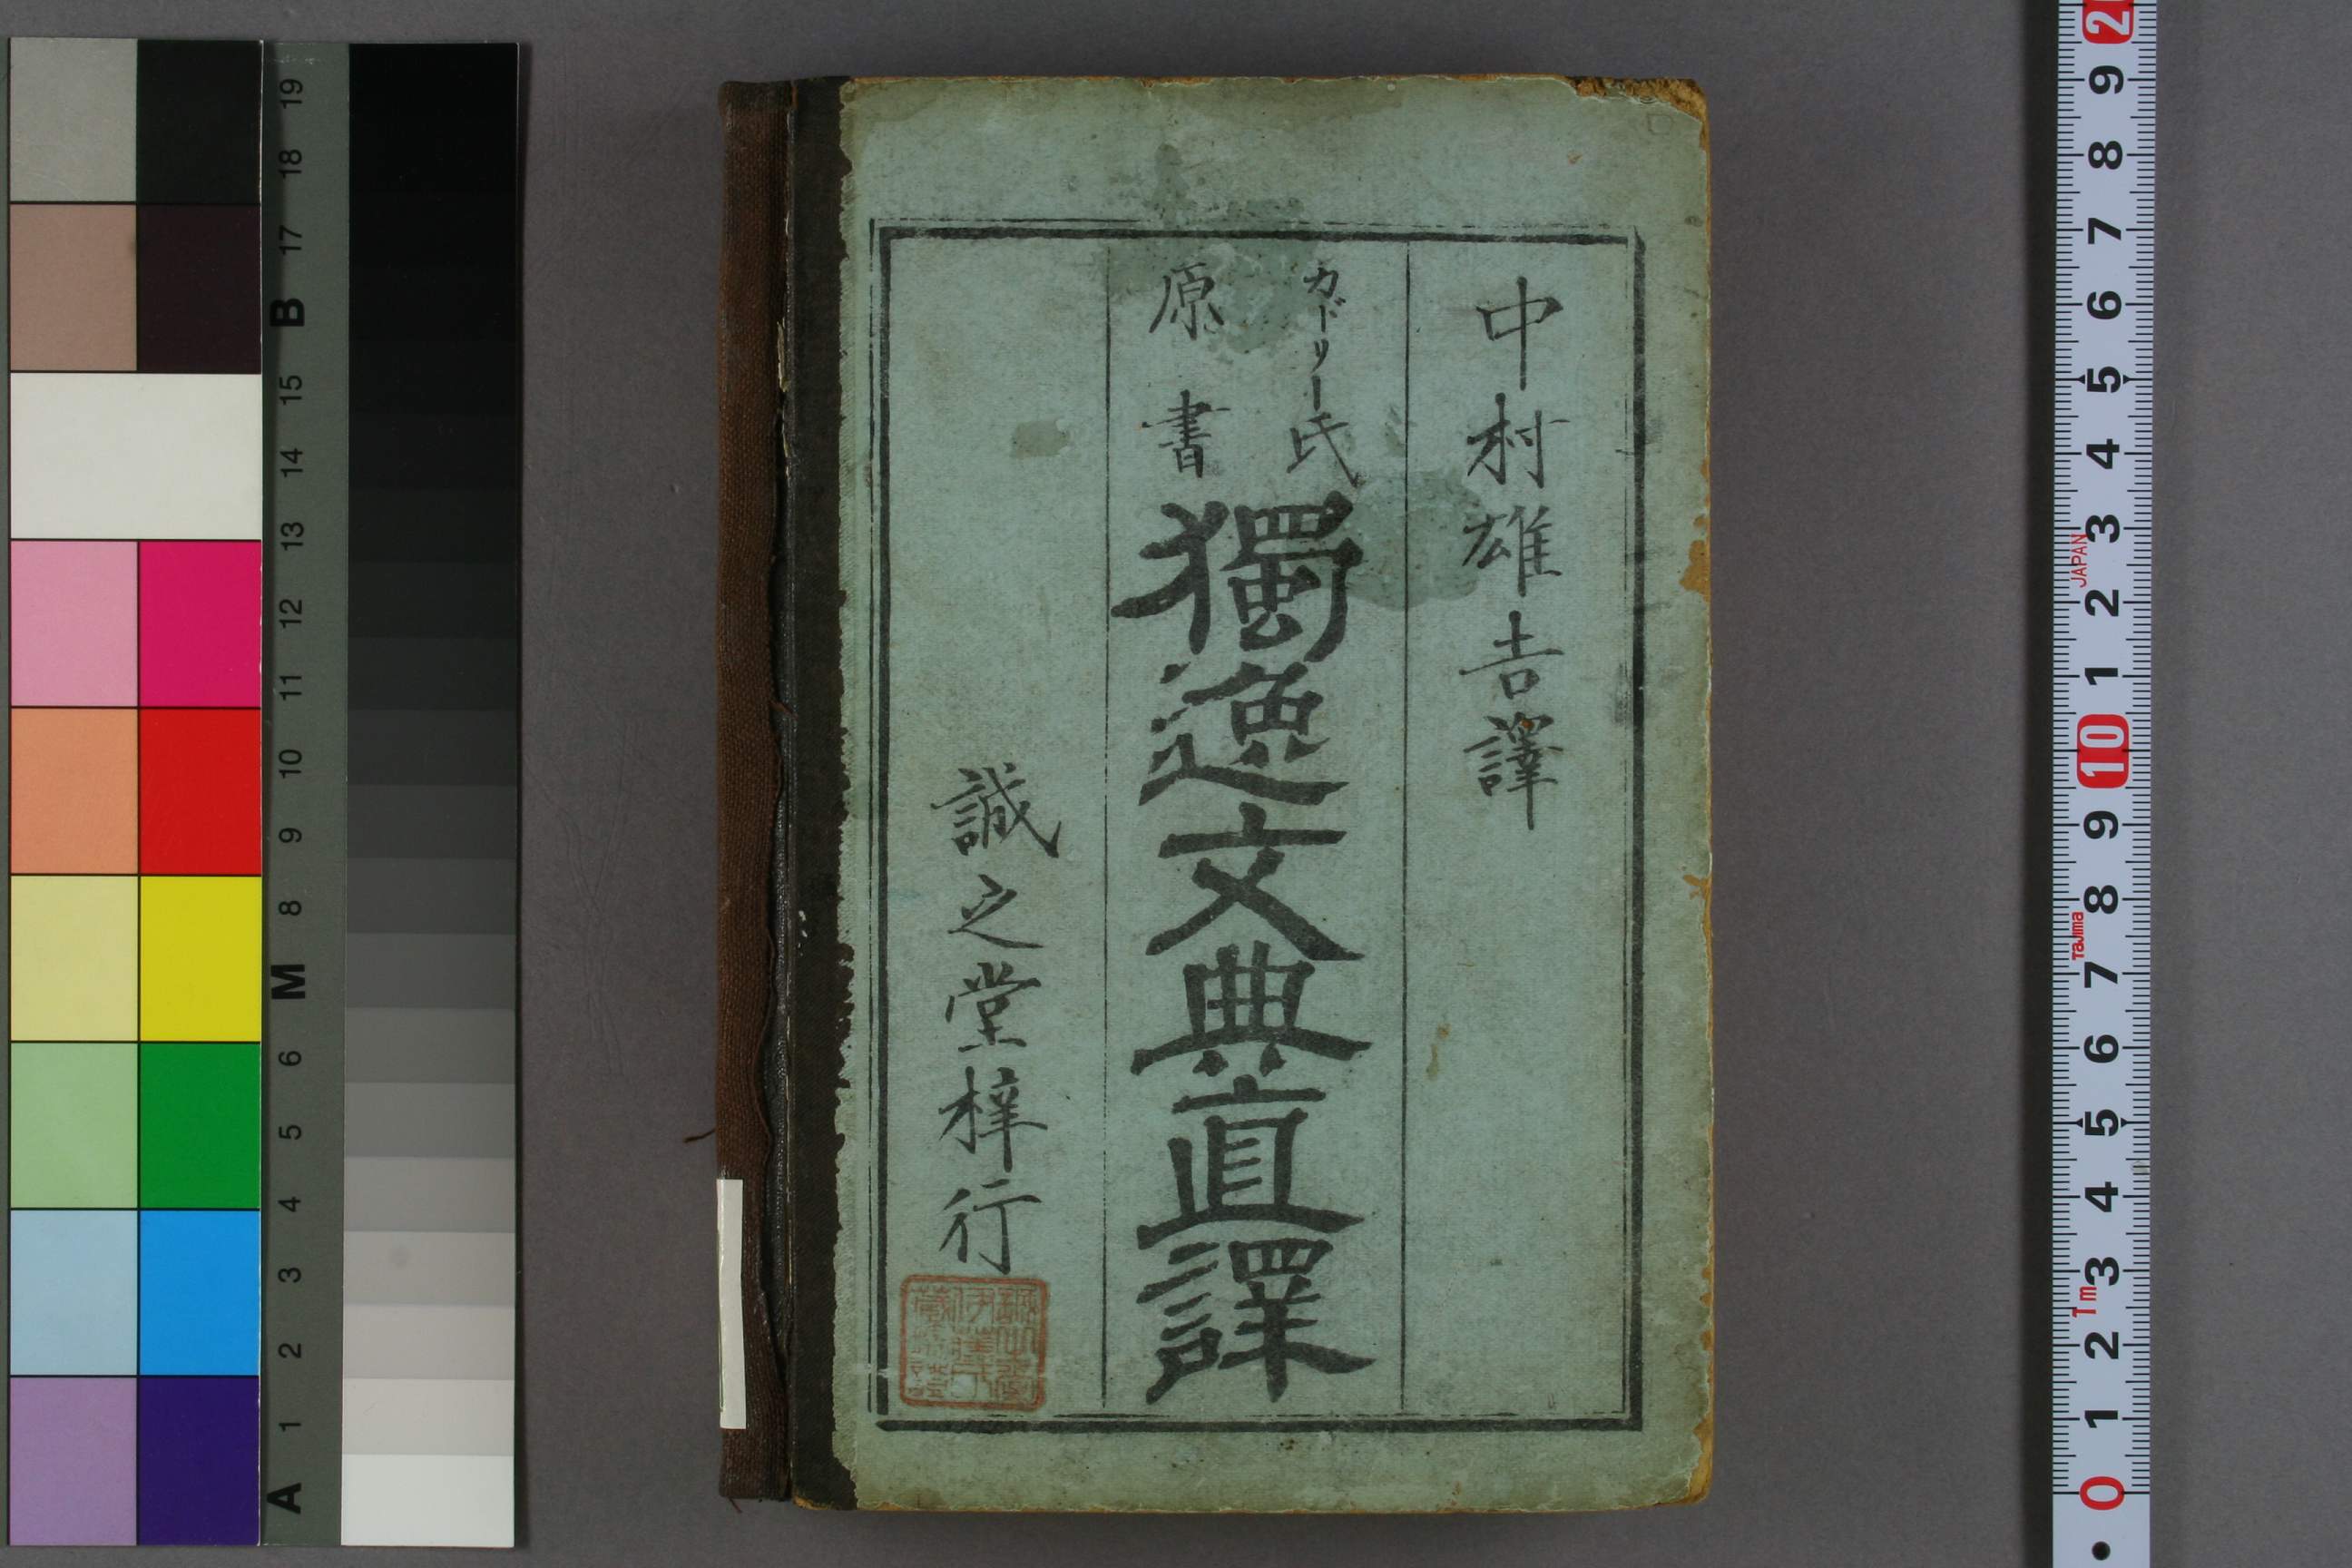 中村雄吉譯
カドリー氏
原書
獨逸文典直譯
誠之堂梓行
19
18
17
B
15
14
13
12
11
10
9
8
M
6
5
4
3
2
1
A
2
9
8
7
6
5
4
3
JAPAN
2
1
10
9
8
Tajima
7
6
5
4
3
Tm
2
1
0